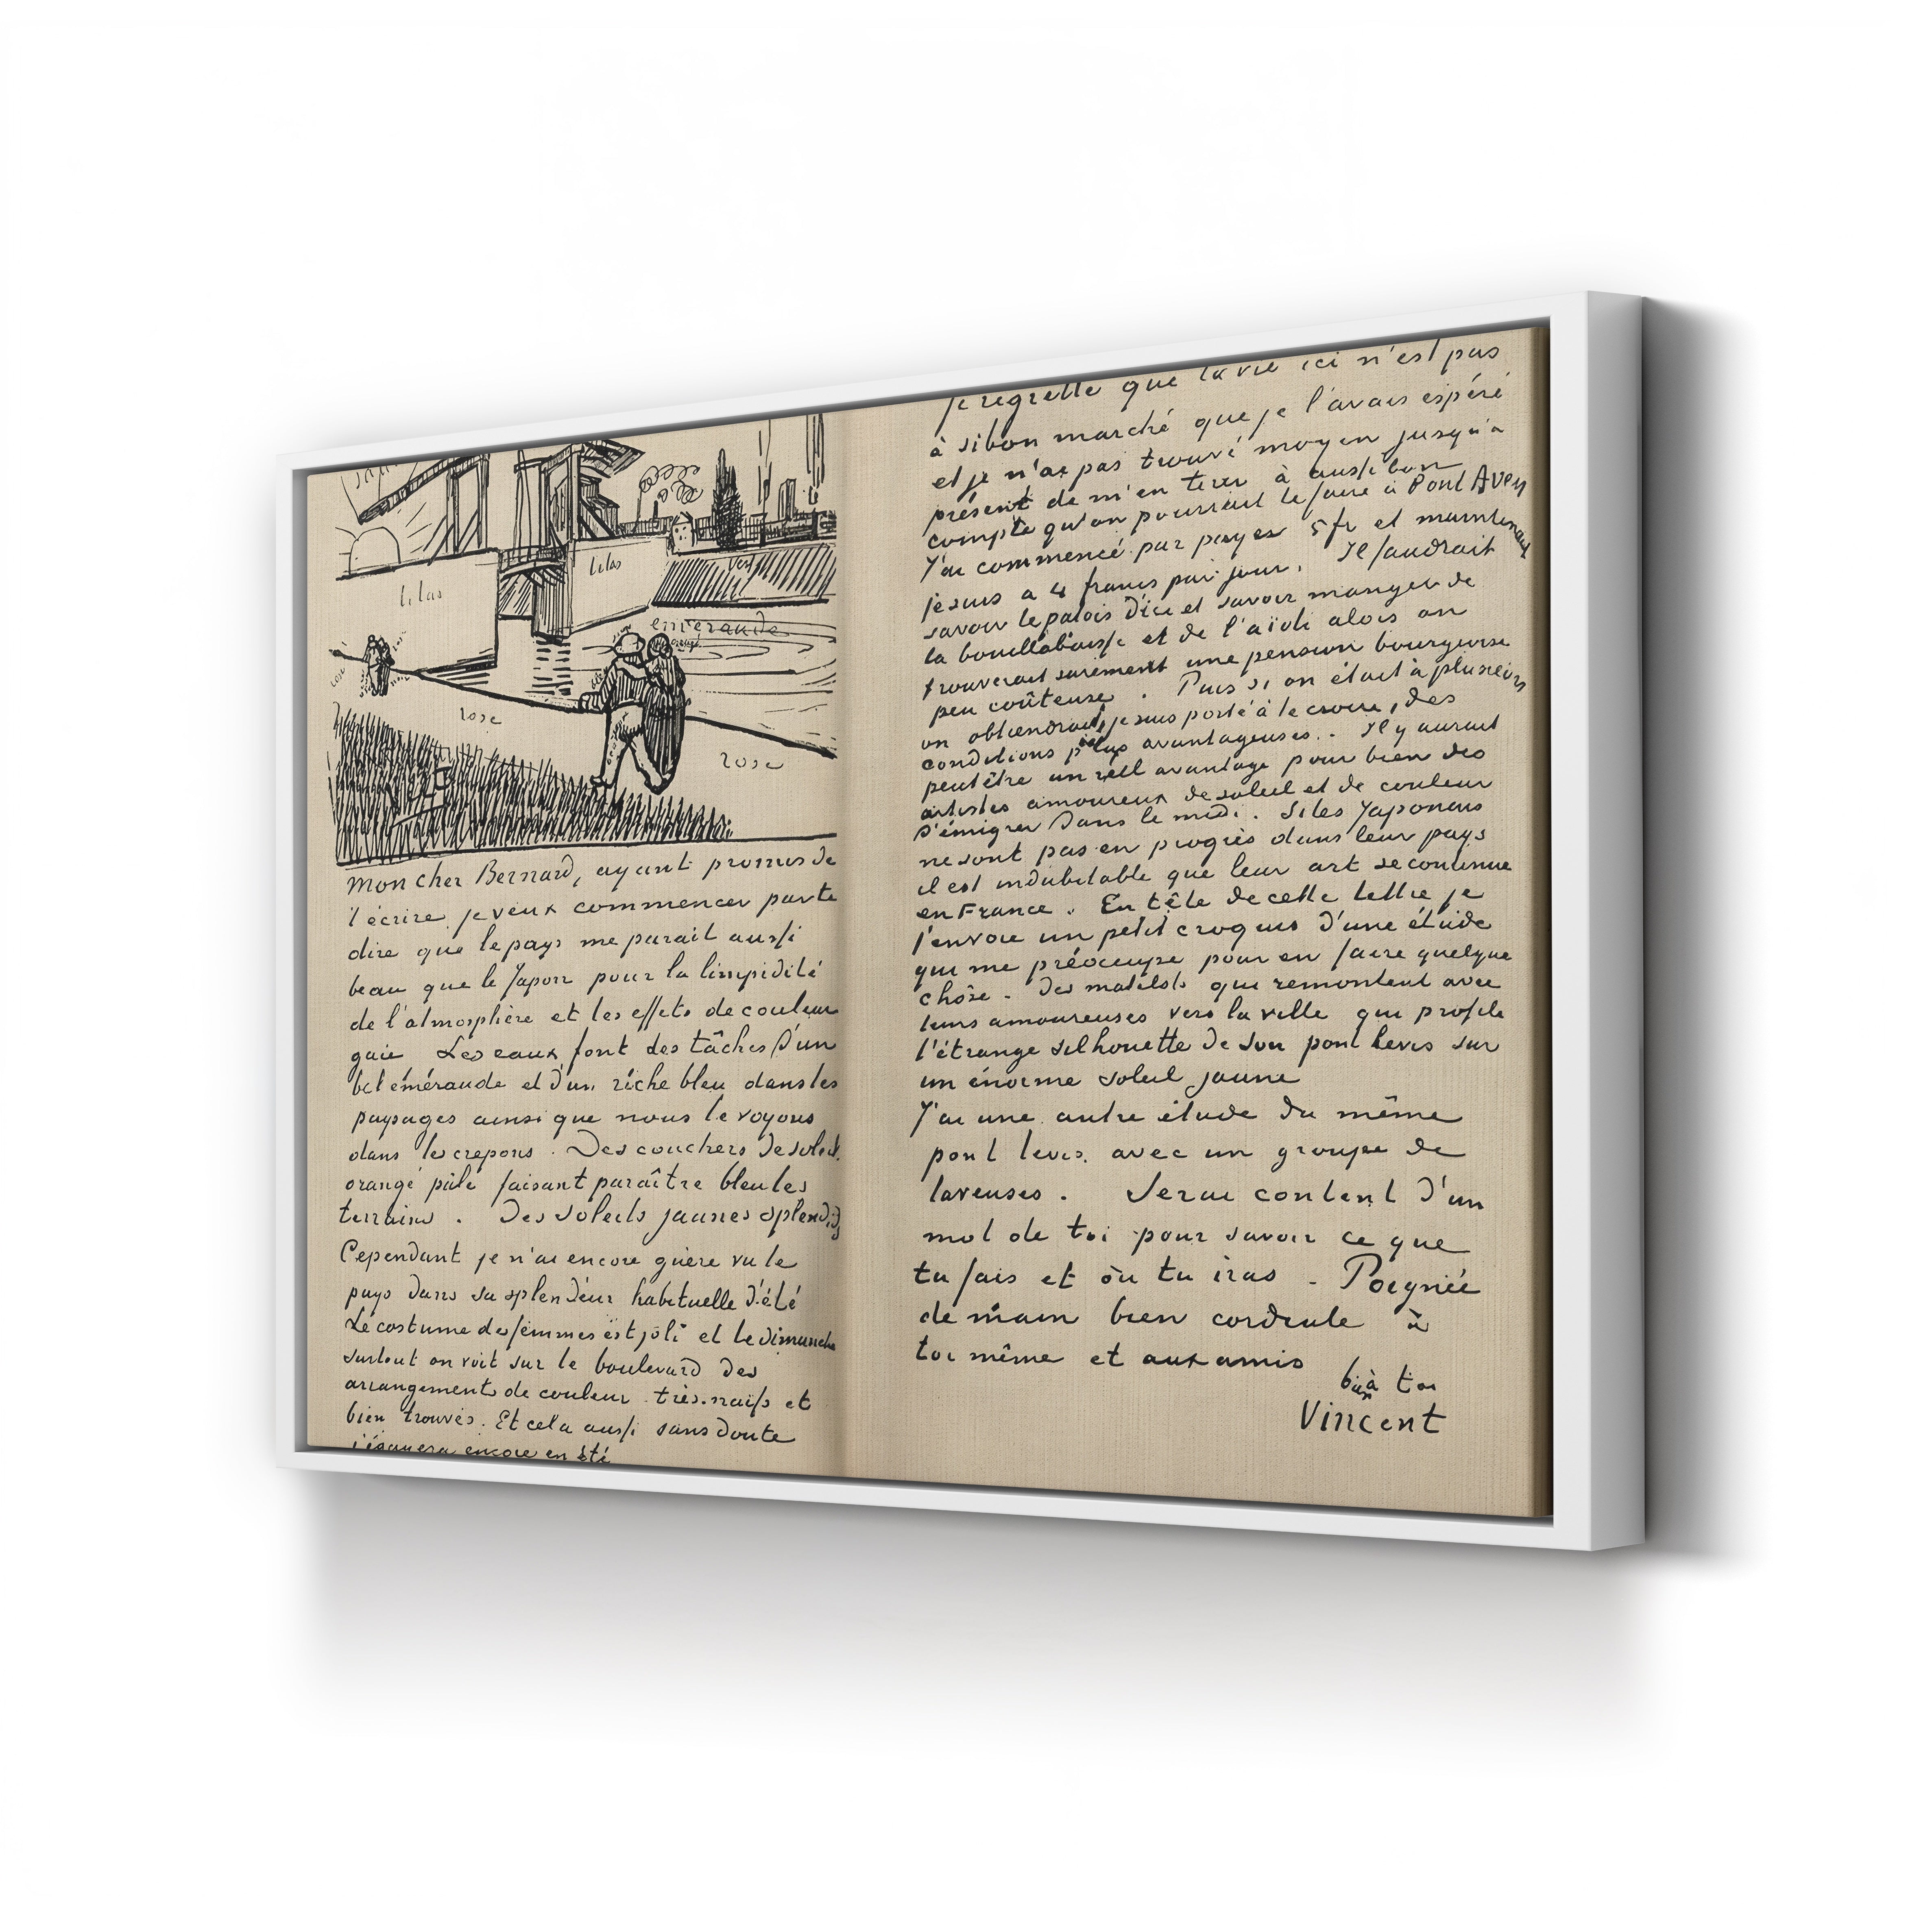 lilas
lilas
vert
emeraude
rose
rose
rose
Mon cher Bernard, ayant promis de
t'écrire je veux commencer par te
dire que le pays me parait aussi
beau que le Japon pour la limpidité
de l'atmosphère et les effets de couleur
gaie Les eaux font des tâches d'un
bel émeraude et d'un riche bleu dans les
paysages ainsi que nous le voyons
dans les crepons. Des couchers de soleil
orangé pâle faisant paraître bleu les
terrains. Des soleils jaunes splendides
Cependant je n'ai encore guère vu le
pays dans sa splendeur habituelle d'été
Le costume des femmes est joli et le dimanche
surtout on voit sur le boulevard des
arrangements de couleur très naïfs et
bien trouvés. Et cela aussi sans doute
s'égayera encore en été
Je regrette que la vie ici n'est pas
à si bon marché que je l'avais espéré
et je n'ai pas trouvé moyen jusqu'à
présent de m'en tirer à aussi bon
compte qu'on pourrait le faire à Pont Aven
J'ai commencé par payer 5 fr et maintenant
je suis a 4 francs par jour. Il faudrait
savoir le patois d'ici et savoir manger de
la bouillabaisse et de l'aïoli alors on
trouverait surement une pension bourgeoise
peu coûteuse. Puis si on était à plusieurs
on obtiendrait, je suis porté à le croire, des
conditions plus avantageuses. Il y aurait
peut être un réell avantage pour bien des
artistes amoureux de soleil et de couleur
d'émigrer dans le midi. Si les Japonais
ne sont pas en progrès dans leur pays
il est indubitable que leur art se continue
en France. En tête de cette lettre je
t'envoie un petit croquis d'une étude
qui me préoccupe pour en faire quelque
chôse. Des matelots qui remontent avec
leurs amoureuses vers la ville qui profile
l'étrange silhouette de son pont levis sur
un énorme soleil jaune
J'ai une autre étude du même
pont levis avec un groupe de
laveuses. Serai content d'un
mot de toi pour savoir ce que
tu fais et où tu iras. Poignée
de main bien cordiale à
toi même et aux amis
bien à toi
Vincent